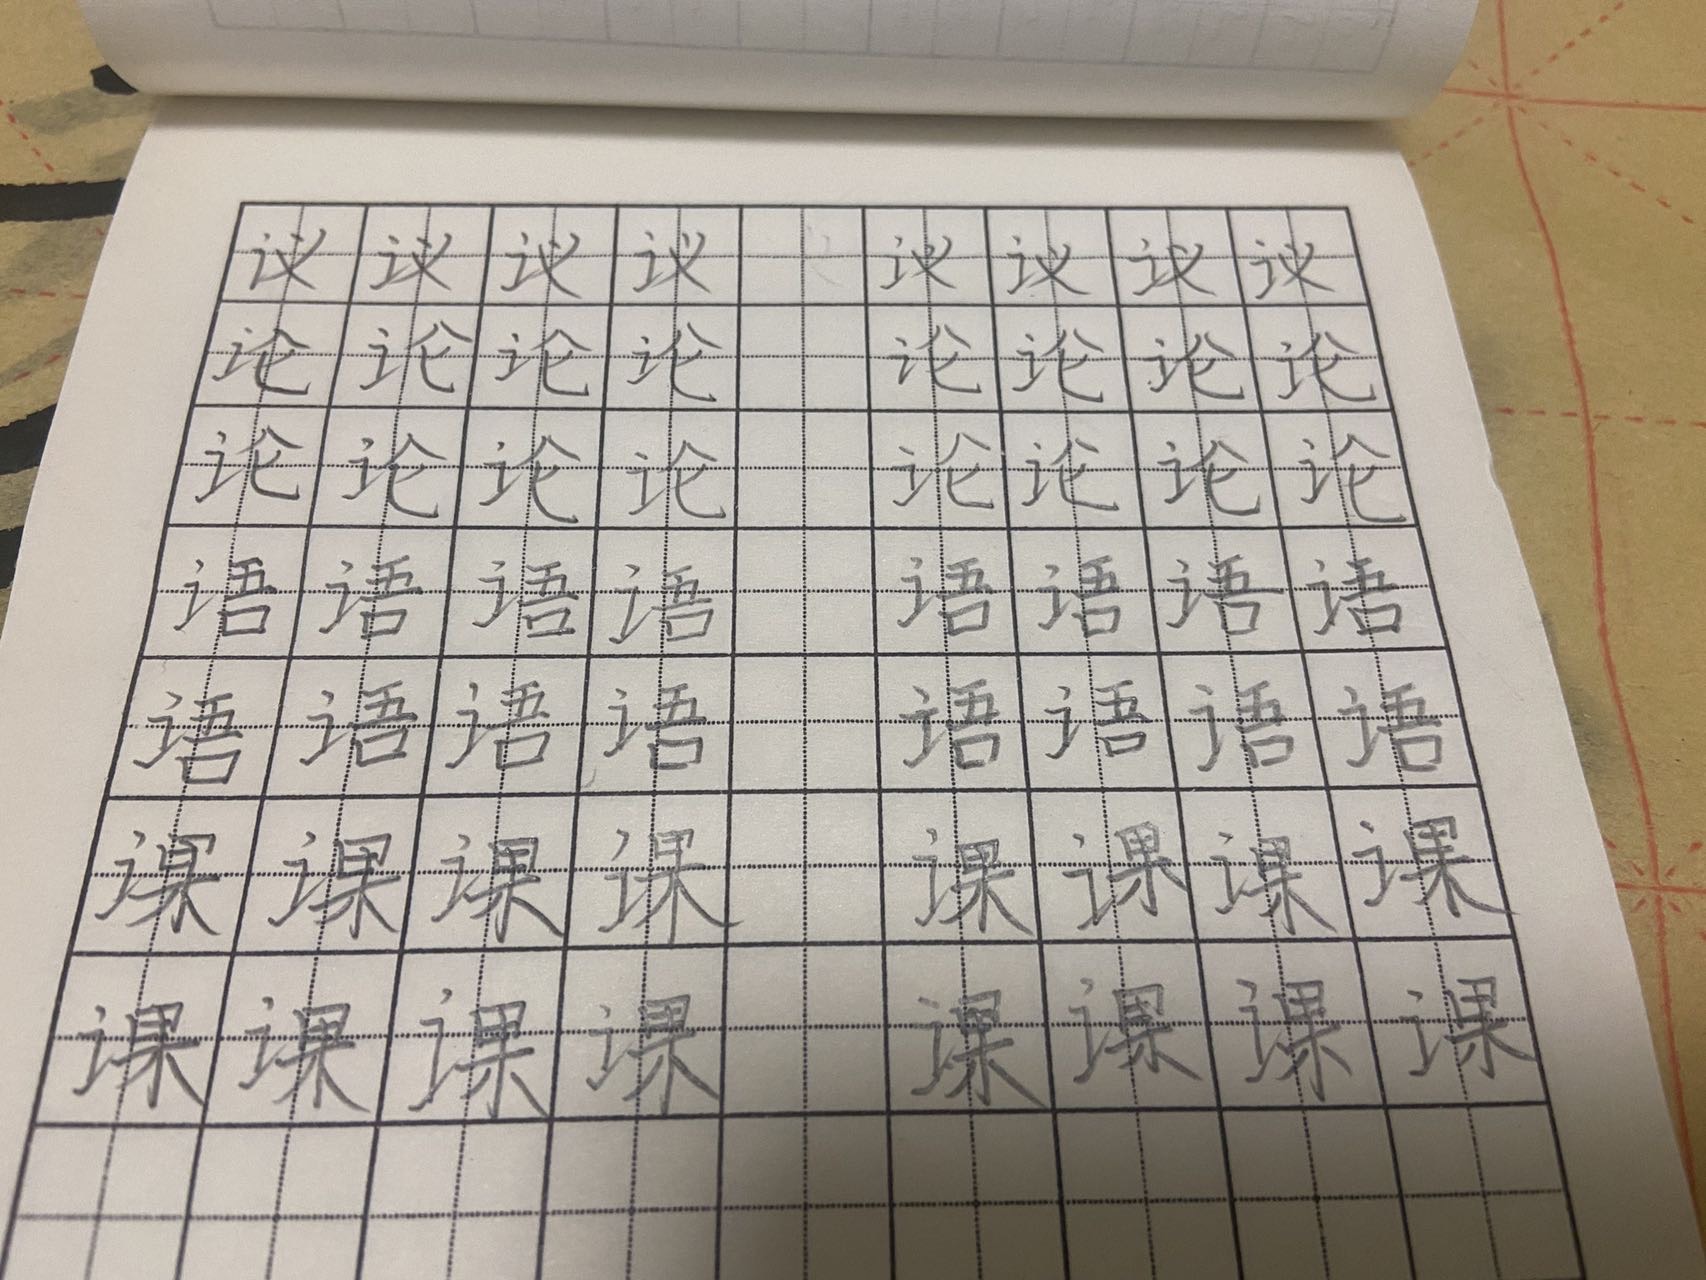 议议议议 议议议议
论论论论 论论论论
论论论论 论论论论
语语语语 语语语语
语语语语 语语语语
课课课课 课课课课
课课课课 课课课课